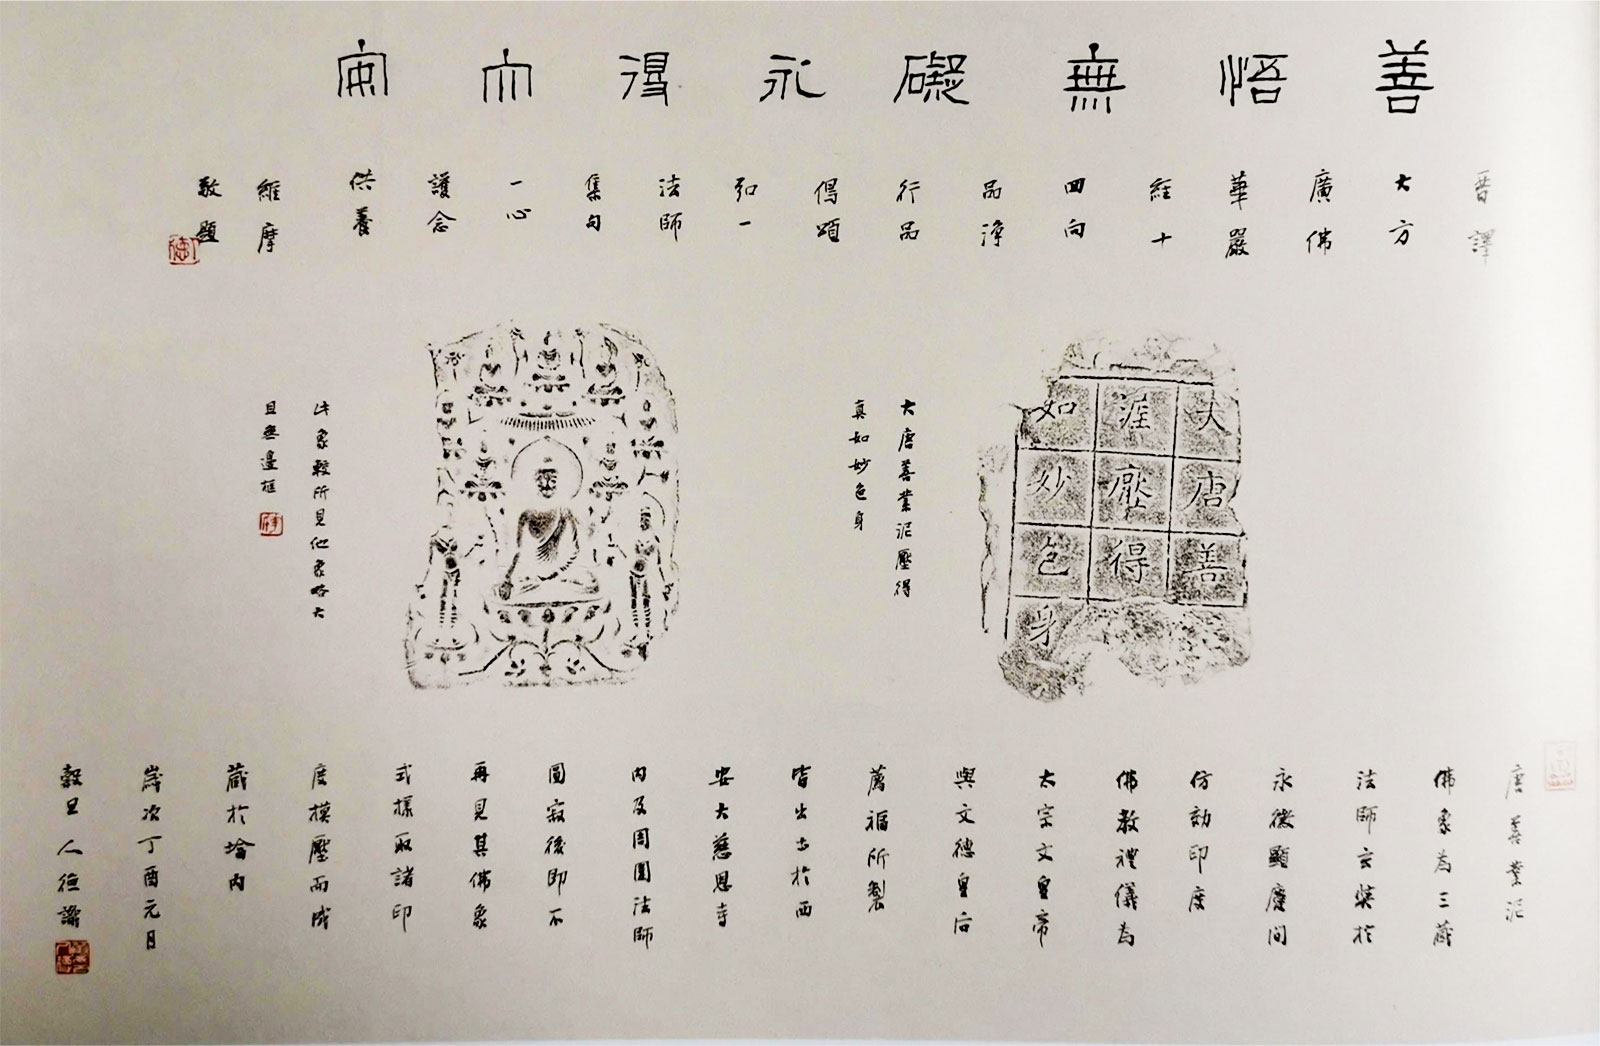 善悟無礙永得大安
晉譯
大方
廣佛
華嚴
經十
回向
品淨
行品
偈頌
弘一
法師
集句
一心
護念
供養
維摩
敬題
大唐善
泥壓得
如妙色身
大唐善業泥壓得
真如妙色身
此象較所見他象略大
且無邊框
唐善業泥
佛象為三藏
法師玄奘於
永徽顯慶間
仿効印度
佛教禮儀為
太宗文皇帝
與文德皇后
薦福所製
皆出土於西
安大慈恩寺
內及周圍法師
圓寂後即不
再見其佛象
式樣取諸印
度模壓而成
藏於塔內
歲次丁酉元月
穀旦人